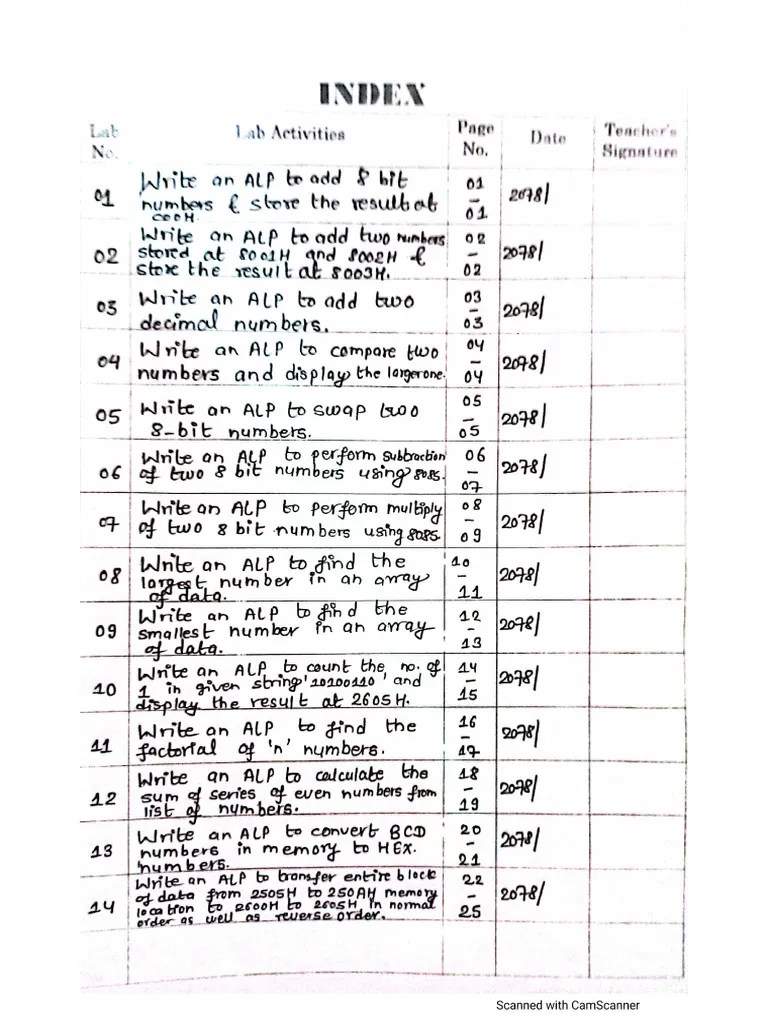 INDEX
Lab No. Lab Activities Page No. Date Teacher's Signature
01 Write an ALP to add 8 bit 01 2078/
numbers & store the result at -
COOH. 01
Write an ALP to add two numbers 02
02 stored at 8001H and 8002H & - 2078/
store the result at 8003H. 02
03 Write an ALP to add two 03 - 2078/
decimal numbers. 03
04 Write an ALP to compare two 04 - 2078/
numbers and display the larger one. 04
05 Write an ALP to swap two 05 - 2078/
8-bit numbers. 05
06 Write an ALP to perform subtraction 06 2078/
of two 8 bit numbers using 8085. 07
07 Write an ALP to perform multiply 08 - 2078/
of two 8 bit numbers using 8085. 09
08 Write an ALP to find the 10 2078/
largest number in an array -
of data. 11
09 Write an ALP to find the 12 2078/
smallest number in an array -
of data. 13
10 Write an ALP to count the no. of 14 2078/
1 in given string '10100110', and -
display the result at 2605H. 15
11 Write an ALP to find the 16 - 2078/
factorial of 'n' numbers. 17
12 Write an ALP to calculate the 18 2078/
sum of series of even numbers from -
list of numbers. 19
13 Write an ALP to convert BCD 20 2078/
numbers in memory to HEX. -
numbers. 21
Write an ALP to transfer entire block 22
14 of data from 2505H to 250AH memory - 2078/
location to 2600H to 2605H in normal 25
order as well as reverse order.
Scanned with CamScanner